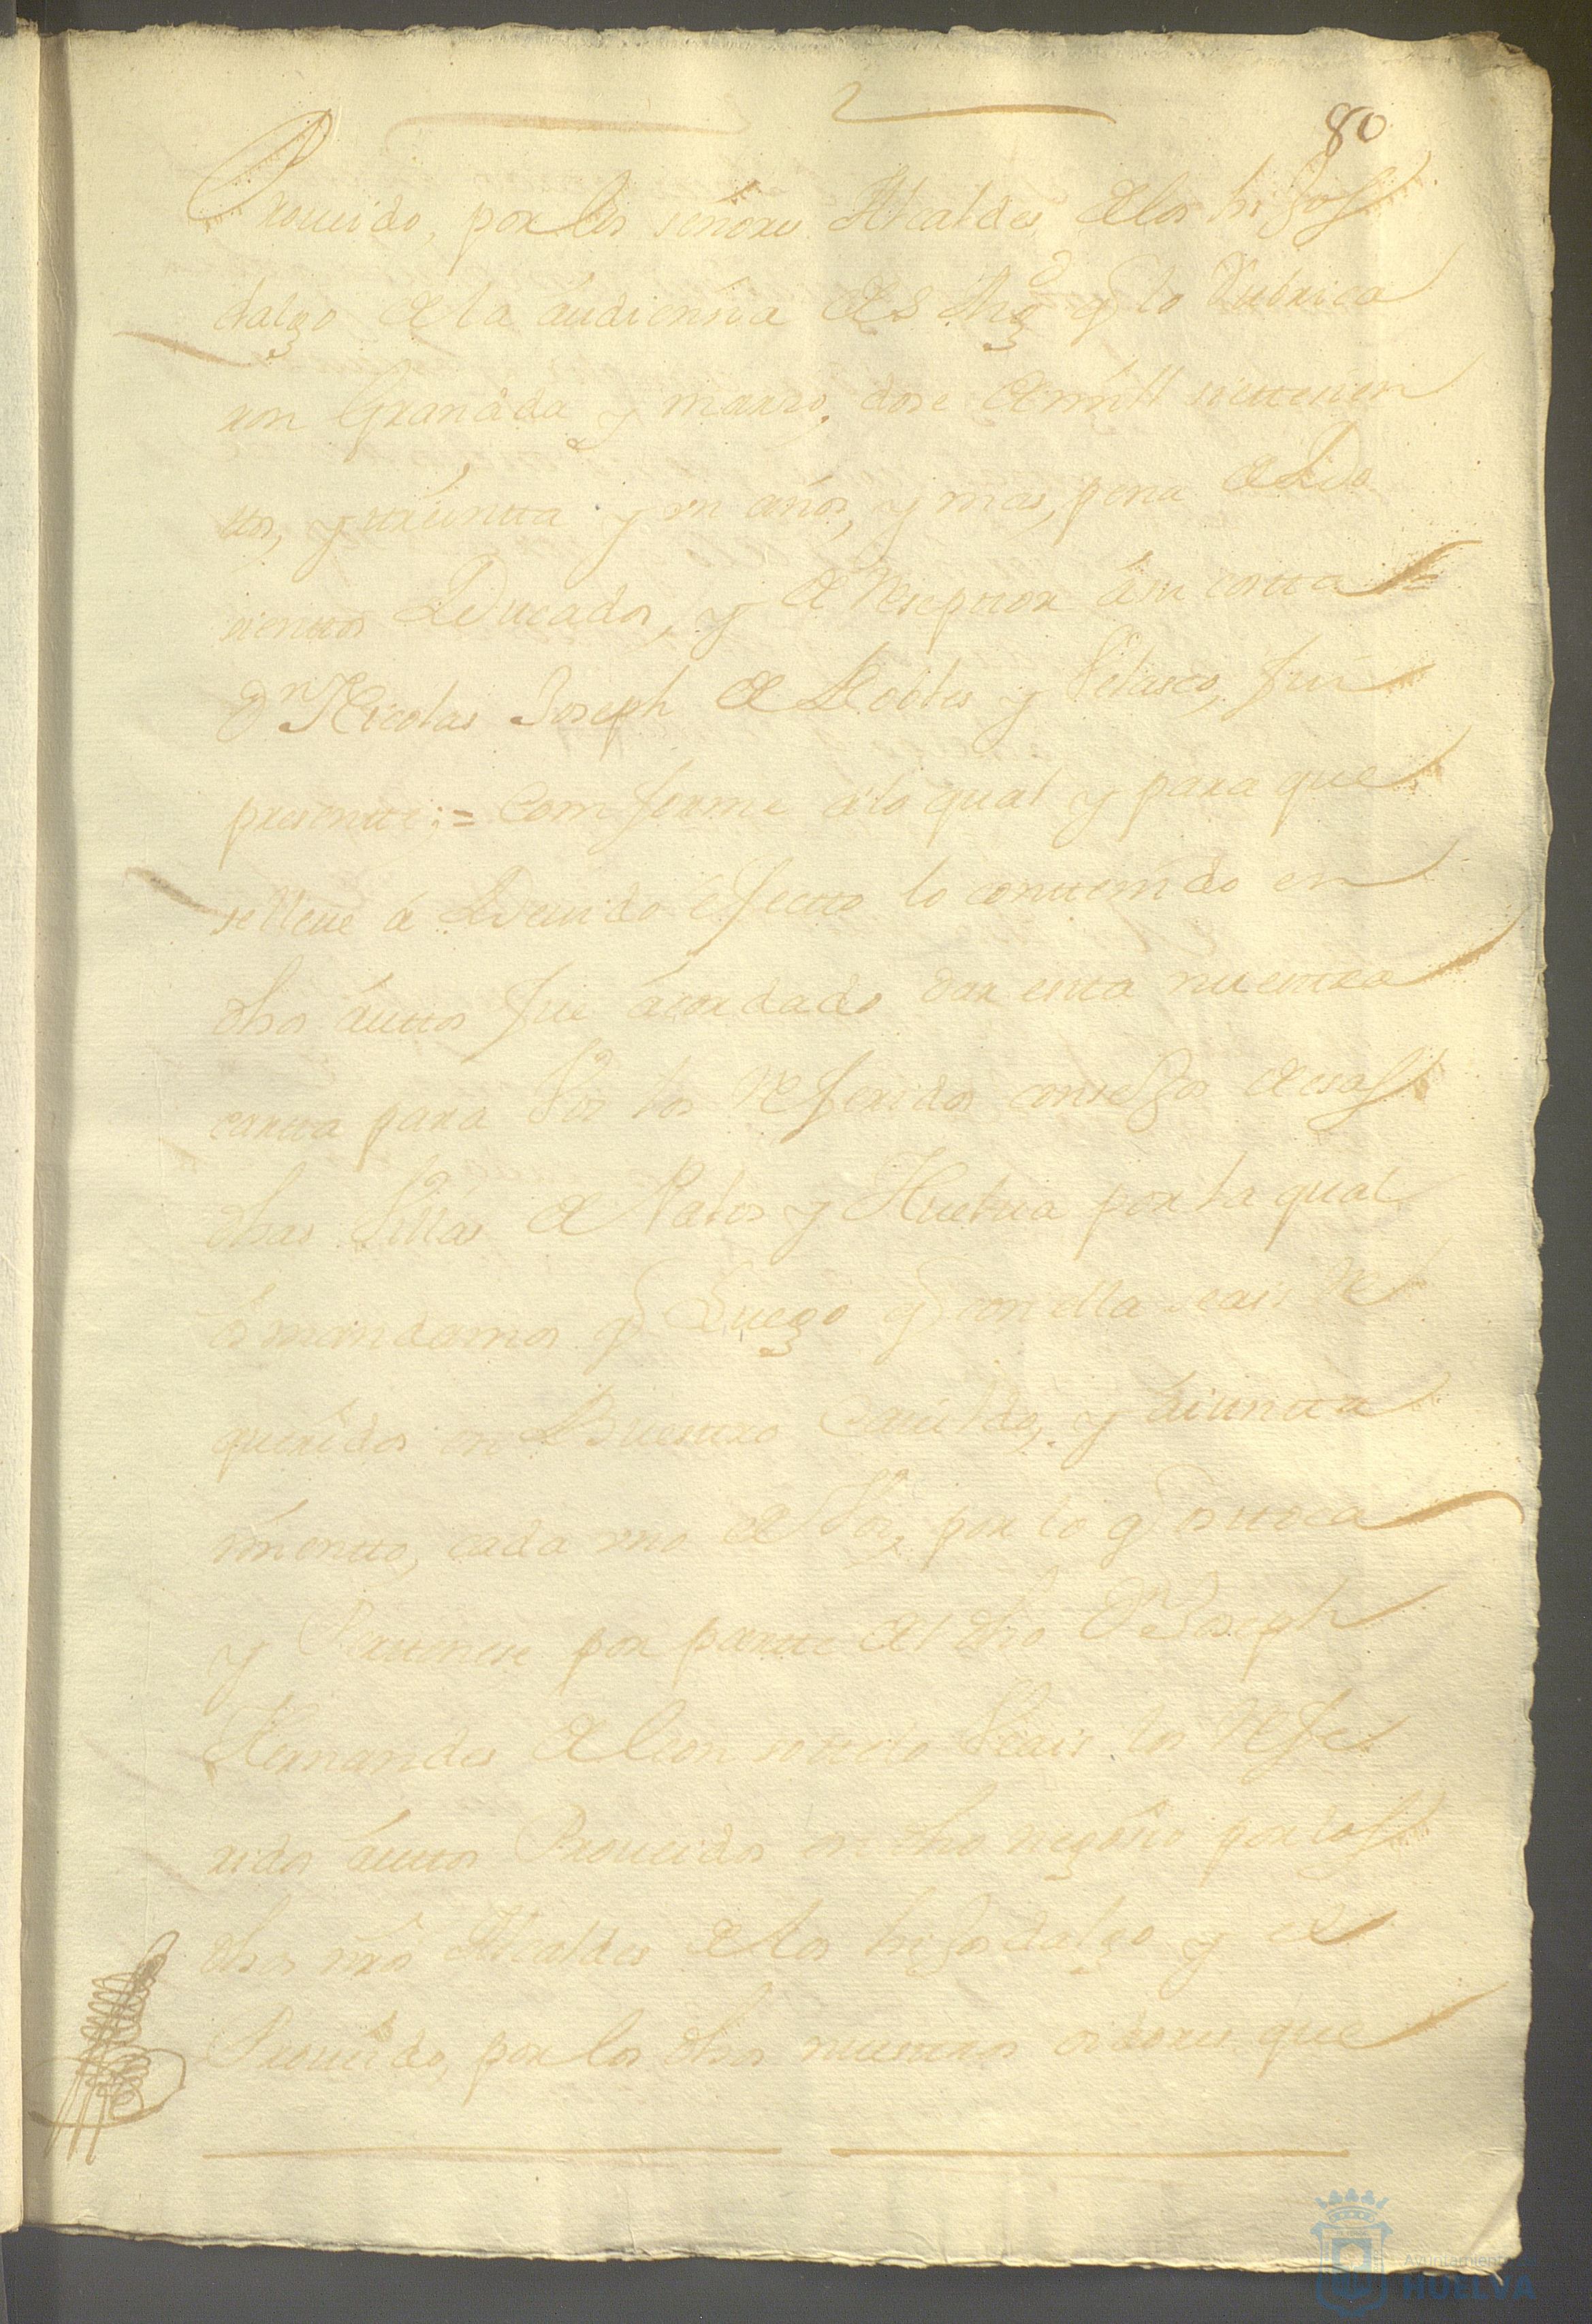 80
Proueido, por los señores Alcaldes de los hijos
dalgo de la áudiensia de S Mgd q̃ lo Rubrica
ron Granada y marzo, dose de mill settesien
ttos, y ttreintta y un años, y mas, pena de Do
sienttos Ducados, y de Reseptor á su costta =
Dn Nicolas Joseph de Robles y Velasco, fui
presentte; = Comforme a lo qual y para que
se lleue á Deuido éfectto lo conttenido en
dhos áuttos fue ácordado dar estta nuestra
cartta para Vos los Referidos consejos de esas
dhas Villas de Palos y Huelua por la qual
os mandamos q̃ Luego q̃ con ella seais Re
queridos en Buesttro Cauildo, y áiuntta
mientto, cada uno de Vos, por lo q̃ os ttoca
y Perttenese por partte del dho Dn Joseph
Hernandes de leon sottelo Veais los Refe
ridos áuttos Proueidos en dho negósio por los
dhos nrõs Alcaldes de los hijos dalgo y el
Proueido, por los dhos nuestros oidores que
Ayuntamiento de
HUELVA